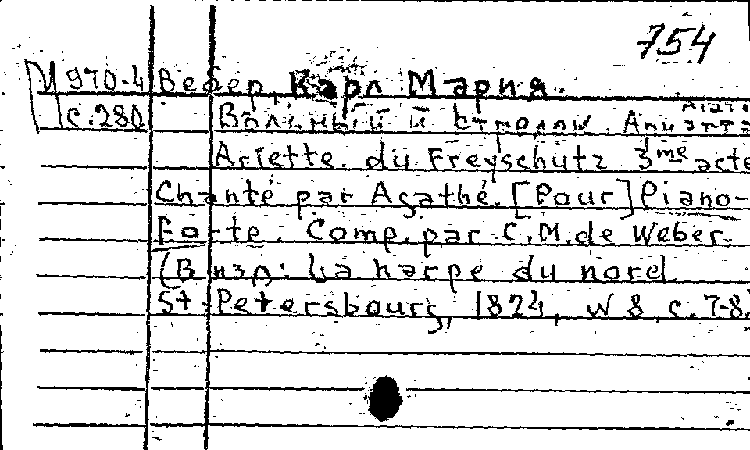 754
М 970-4 Вебер, Карл Мария.
с. 280 Вольный стрелок. Ариэтта
Ariette du Freyschutz 3me acte
Chanté par Agathé. [Pour] Piano-
Forte. Comp. par C. M. de Weber.
(В изд: La harpe du nord
St. Petersbourg, 1824, N 8 с. 7-8.